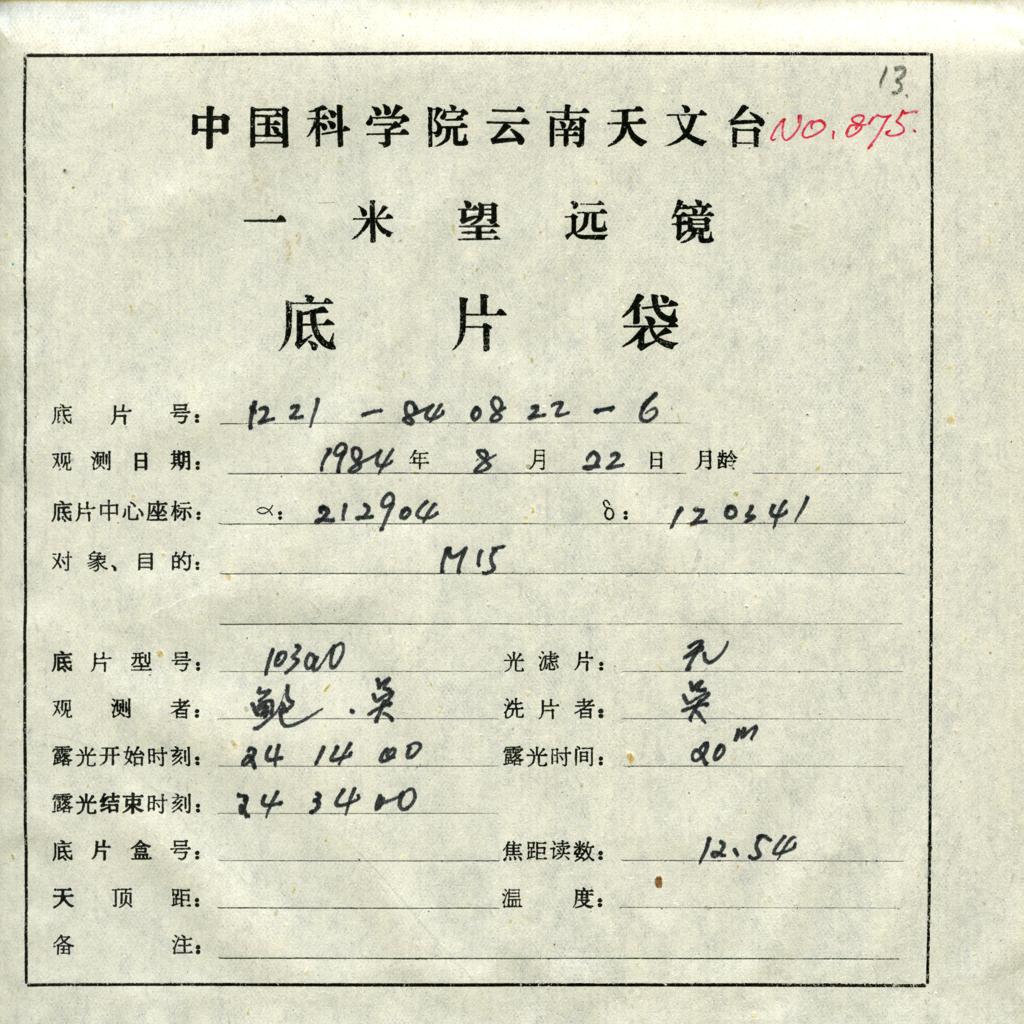 13.
中国科学院云南天文台 NO.875.
一米望远镜
底片袋
底片号: 1221-840822-6
观测日期: 1984年8月22日 月龄
底片中心座标: α: 212904 δ: 120341
对象、目的: M15
底片型号: 103aO 光滤片: 无
观测者: 鲍.吴 洗片者: 吴
露光开始时刻: 24 14 00 露光时间: 20m
露光结束时刻: 24 34 00
底片盒号: 焦距读数: 12.54
天顶距: 温度:
备注: